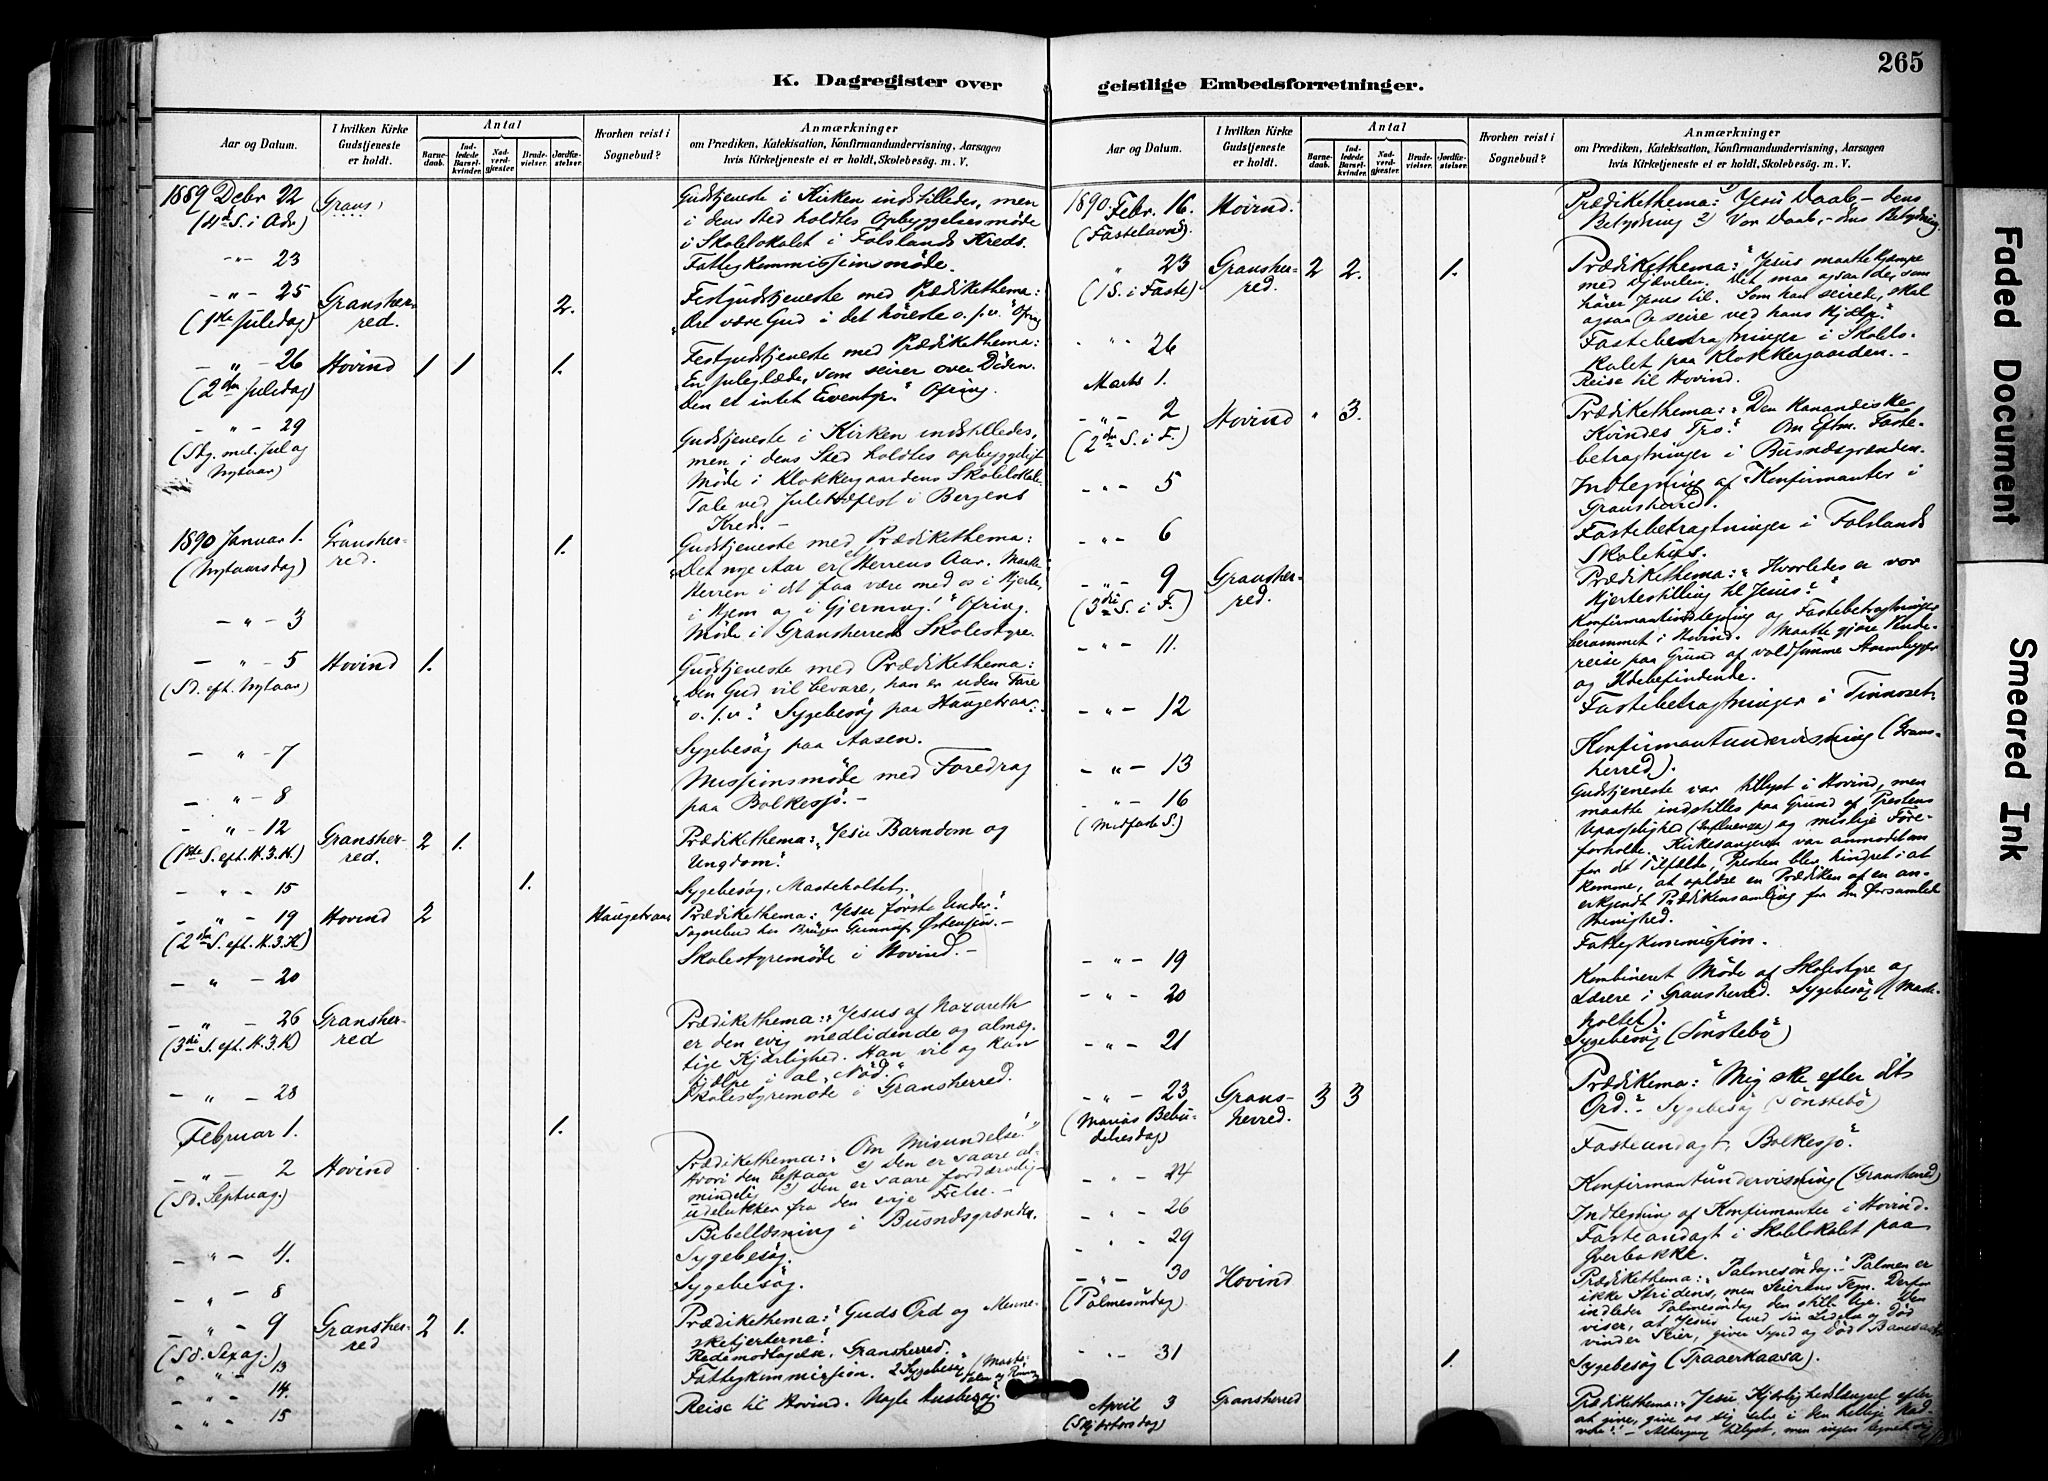 265
K. Dagregister over
geistlige Embedsforretninger.
Aar og Datum.
I hvilken Kirke
Gudstjeneste
er holdt.
Antal
Barne-
daab.
Ind-
ledede
Barsel-
kvinder.
Nad-
verd-
gjæster.
Brude-
vielser.
Jordfæ-
stelser.
Hvorhen reist i
Sognebud?
Anmærkninger
om Prædiken, Katekisation, Konfirmandundervisning, Aarsagen
hvis Kirketjeneste ei er holdt, Skolebesøg. m. V.
1889 Debr 22 Grans:
(4de S. i Adv)
Gudstjeneste i Kirken indstilledes, men
i dens Sted holdtes Opbyggelsesmöde
i Skolelokalet i Folslands Kreds.
-"- 23 Fattigkommissionsmöde.
-"- 25 Gransher- 2. Festgudstjeneste med Prædikethema:
(1ste Juledag) red. "Ære være Gud i det höieste o.s.v." Ofring
-"- 26 Hovind 1 1 1. Festgudstjeneste med Prædikethema:
(2den Juledag) "En juleglæde, som seirer over Döden.
Den er intet Eventyr." Ofring.
-"- 29 Gudstjeneste i Kirken indstilledes,
(Sdg. mel. Jul og men i dens Sted holdtes opbyggeligt
Nytaar) Möde i Klokkergaardens Skolelokale.
Tale ved Juletræfest i Bergens
Kreds.-
1890 Januar 1. Gransher- 1. Gudstjeneste med Prædikethema:
(Nytaarsdag) red. "Det nye Aar er et Herrens Aar. Maatte
Herren i det faa være med os i Hjerte,
i Hjem og i Gjerning!" Ofring.
-"- 3 Möde i Gransherreds Skolestyre.
-"- 5 Hovind 1. Gudstjeneste med Prædikethema:
(Sd. eft. Nytaar) "Den Gud vil bevare, han er uden Fare
o.s.v." Sygebesög paa Haugetraa:
-"- 7 Sygebesög paa Aasen.
-"- 8 Missionsmöde med Foredrag
paa Bolkesjö.-
-"- 12 Gransher- 2 1. Prædikethema: "Jesu Barndom og
(1ste S. eft. H.3.K) red. Ungdom."
-"- 15 1. Sygebesög, Masteholtet.
-"- 19 Hovind 2 Haugetraa: Prædikethema: "Jesu förste Under."
(2den S. eft. H.3.K) Sognebud hos Brüger Gunnuf Östensjöv.-
-"- 20 Skolestyremöde i Hovind.-
-"- 26 Gransher- Prædikethema: "Jesus af Nazareth
(3die S. eft. H.3.K) red er den evig medlidende og almæg-
tige Kjærlighed. Han vil og kan
hjælpe i al Nöd."
-"- 28 Skolestyremöde i Gransherred.
Februar 1. 1.
-"- 2 Hovind Prædikethema: "Om Misundelse."
(Sd. Septuag.) Hvori den bestaar 2) Den er saare al-
mindelig 3) Den er saare fordærvelig
udelukker fra den evige Frelse.-
Bibellæsning i Busnæsgrænden.
-"- 4. Sygebesög.
-"- 8 Sygebesög.
-"- 9 Gransher- 2 1. Prædikethema: "Guds Ord og Menne-
(Sd. Sexag.) red skehjerterne."
-"- 13 Redemodtagelse, Gransherred.
-"- 14. Fattigkommission. 2 Sygebesög
-"- 15 Reise til Hovind. Nogle Husbesög.
Aar og Datum.
I hvilken Kirke
Gudstjeneste
er holdt.
Antal
Barne-
daab.
Ind-
ledede
Barsel-
kvinder.
Nad-
verd-
gjæster.
Brude-
vielser.
Jordfæ-
stelser.
Hvorhen reist i
Sognebud?
Anmærkninger
om Prædiken, Katekisation, Konfirmandundervisning, Aarsagen
hvis Kirketjeneste et er holdt, Skolebesög. m. V.
1890. Febr. 16. Hovind. Prædikethema: "Jesu Daab - dens
(Fastelavnd). Betydning 2) Vor Daab, - dens Betydning.
" 23 Gransher- 2 2. 1. Prædikethema: "Jesus maatte kjæmpe
(1 S. i Faste) red. med Djævelen. Det maa ogsaa de, som
hører Jesus til. Som han seirede, skal
ogsaa de seire ved hans Hjælp."
-"- 26 Fastebetragtninger i Skolelo-
kalet paa Klokkergaarden.-
Marts 1. Reise til Hovind.
-"- 2 Hovind " 3. Prædikethema: "Den kananæiske
(2den S. i F.) Kvindes Tro." Om Eftm. Faste-
betragtninger i Busnæsgrænden.
-"- 5 Indtegning af Konfirmanter i
Gransherred.
-"- 6 Fastebetragtninger i Folslands
Skolehus.
-"- 9 Gransher- Prædikethema: "Hvorledes er vor
(3die S. i F.) red. Hjertestilling til Jesus?"
-"- 11. Konfirmantindtegning og Fastebetragtninger
berammet i Hovind. Maatte gjøre Vende-
reise paa Grund af voldsomme
og Ildebefindende.
-"- 12 Fastebetragtninger i Tinnoset.
-"- 13 Konfirmantundervisning (Grans-
herred).
-"- 16 Gudstjeneste var tillyst i Hovind, men
(Midfaste S.) maatte indstilles paa Grund af Prestens
Upasselighed (Influenza) og mislige Före-
forholde. Kirkesangeren var anmodet om
for det Tilfælde, Presten blev hindret i at
komme, at oplæse en Prædiken af en an-
erkjendt Prædikensamling for den forsamlede
Menighed.
-"- 19 Fattigkommission.
-"- 20 Kombineret Möde af Skolestyre og
Lærere i Gransherred. Sygebesög (Maste-
holtet).
-"- 21 Sygebesög (Sönstebö)
-"- 23 Grans- 3 3 Prædikema: "Mig ske efter dit
(Marias Bebu- herred. Ord."- Sygebesög (Sönstebö)
delsesdag) Fasteandagt, Bolkesjö.
-"- 24 Konfirmantundervisning (Gransherred)
-"- 26 Indtegning af Konfirmanter i Hovind.
-"- 29 Fasteandagt i Skolelokalet paa
Överbakke.
-"- 30 Hovind Prædikethema: "Palmesöndag.- Palmen er
(Palmesöndag) ikke Stridens, men Seierens Tegn. Derfor
indleder Palmesöndag den stille Uge. Den
viser, at Jesus ved sin Lidelse og Död
vinder Seier, giver Synd og Död Banesaar.
-"- 31 1. Sygebesög (Traaerkaasa).
April 3 Gransherred Prædikethema: "Jesu Kjærlighedslængsel efter
(Skjærtorsdag) at give, give os sig selv i den hellige Nad-
verd."- Altergang tillyst, men ingen tegnet sig
Faded Document
Smeared Ink